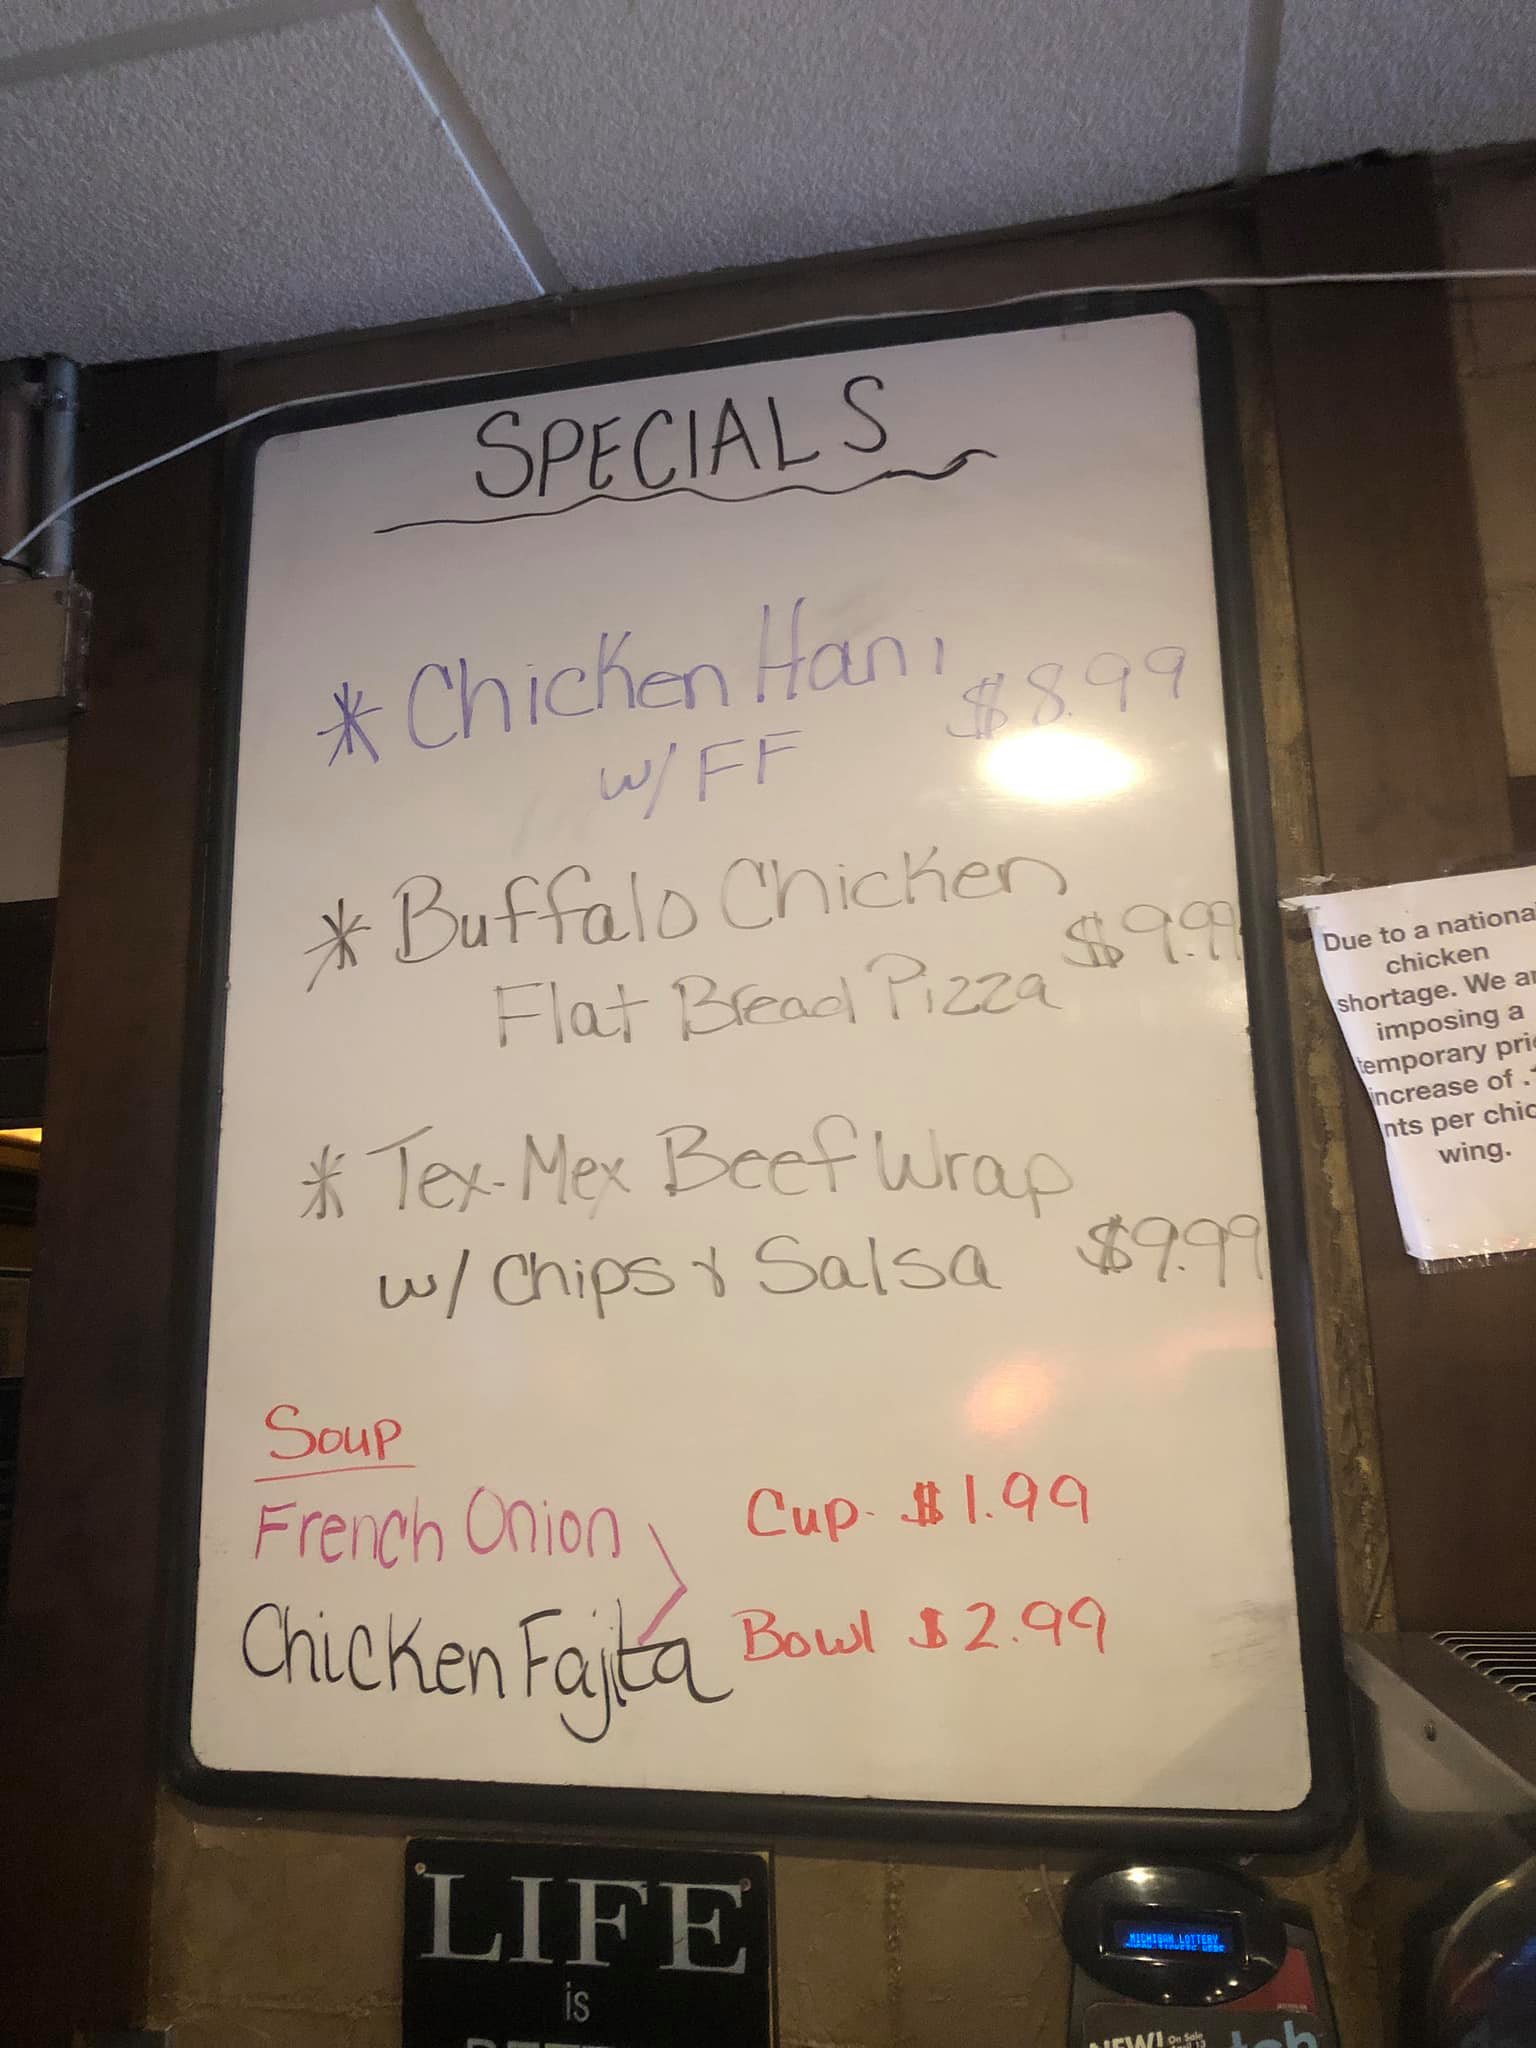 SPECIALS
* Chicken Hani $8.99
w/ FF
* Buffalo Chicken
Flat Bread Pizza $9.99
* Tex-Mex Beef Wrap
w/ Chips & Salsa $9.99
Soup
French Onion
Chicken Fajita
Cup - $1.99
Bowl $2.99
Due to a nationa
chicken
shortage. We ar
imposing a
temporary pri
increase of .
nts per chic
wing.
LIFE
is
MICHIGAN LOTTERY
NEW! On Sale